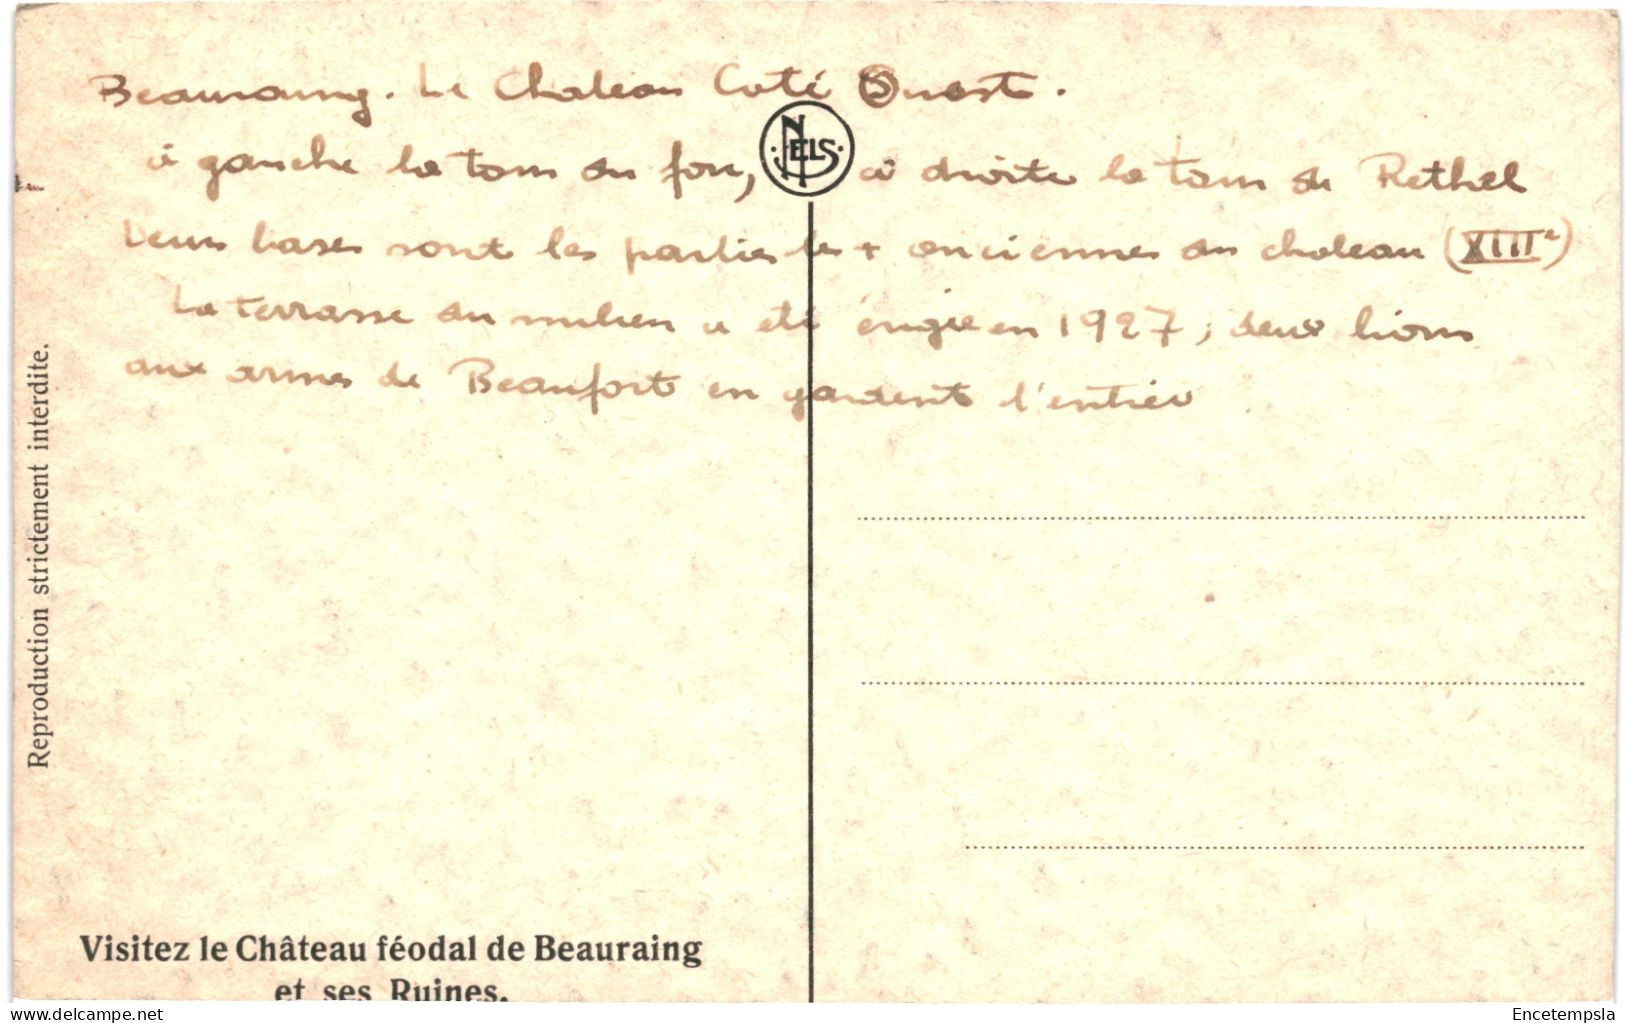 Beauraing. Le Chateau Coté Ouest.
à gauche la tour du four, à droite la tour de Rethel
Leurs bases sont les parties les + anciennes du chateau (XIIIe)
La terrasse du milieu a été érigée en 1927; deux lions
aux armes de Beaufort en gardent l'entrée
NELS
Reproduction strictement interdite.
Visitez le Château féodal de Beauraing
et ses Ruines.
delcampe.net
Encetempsla